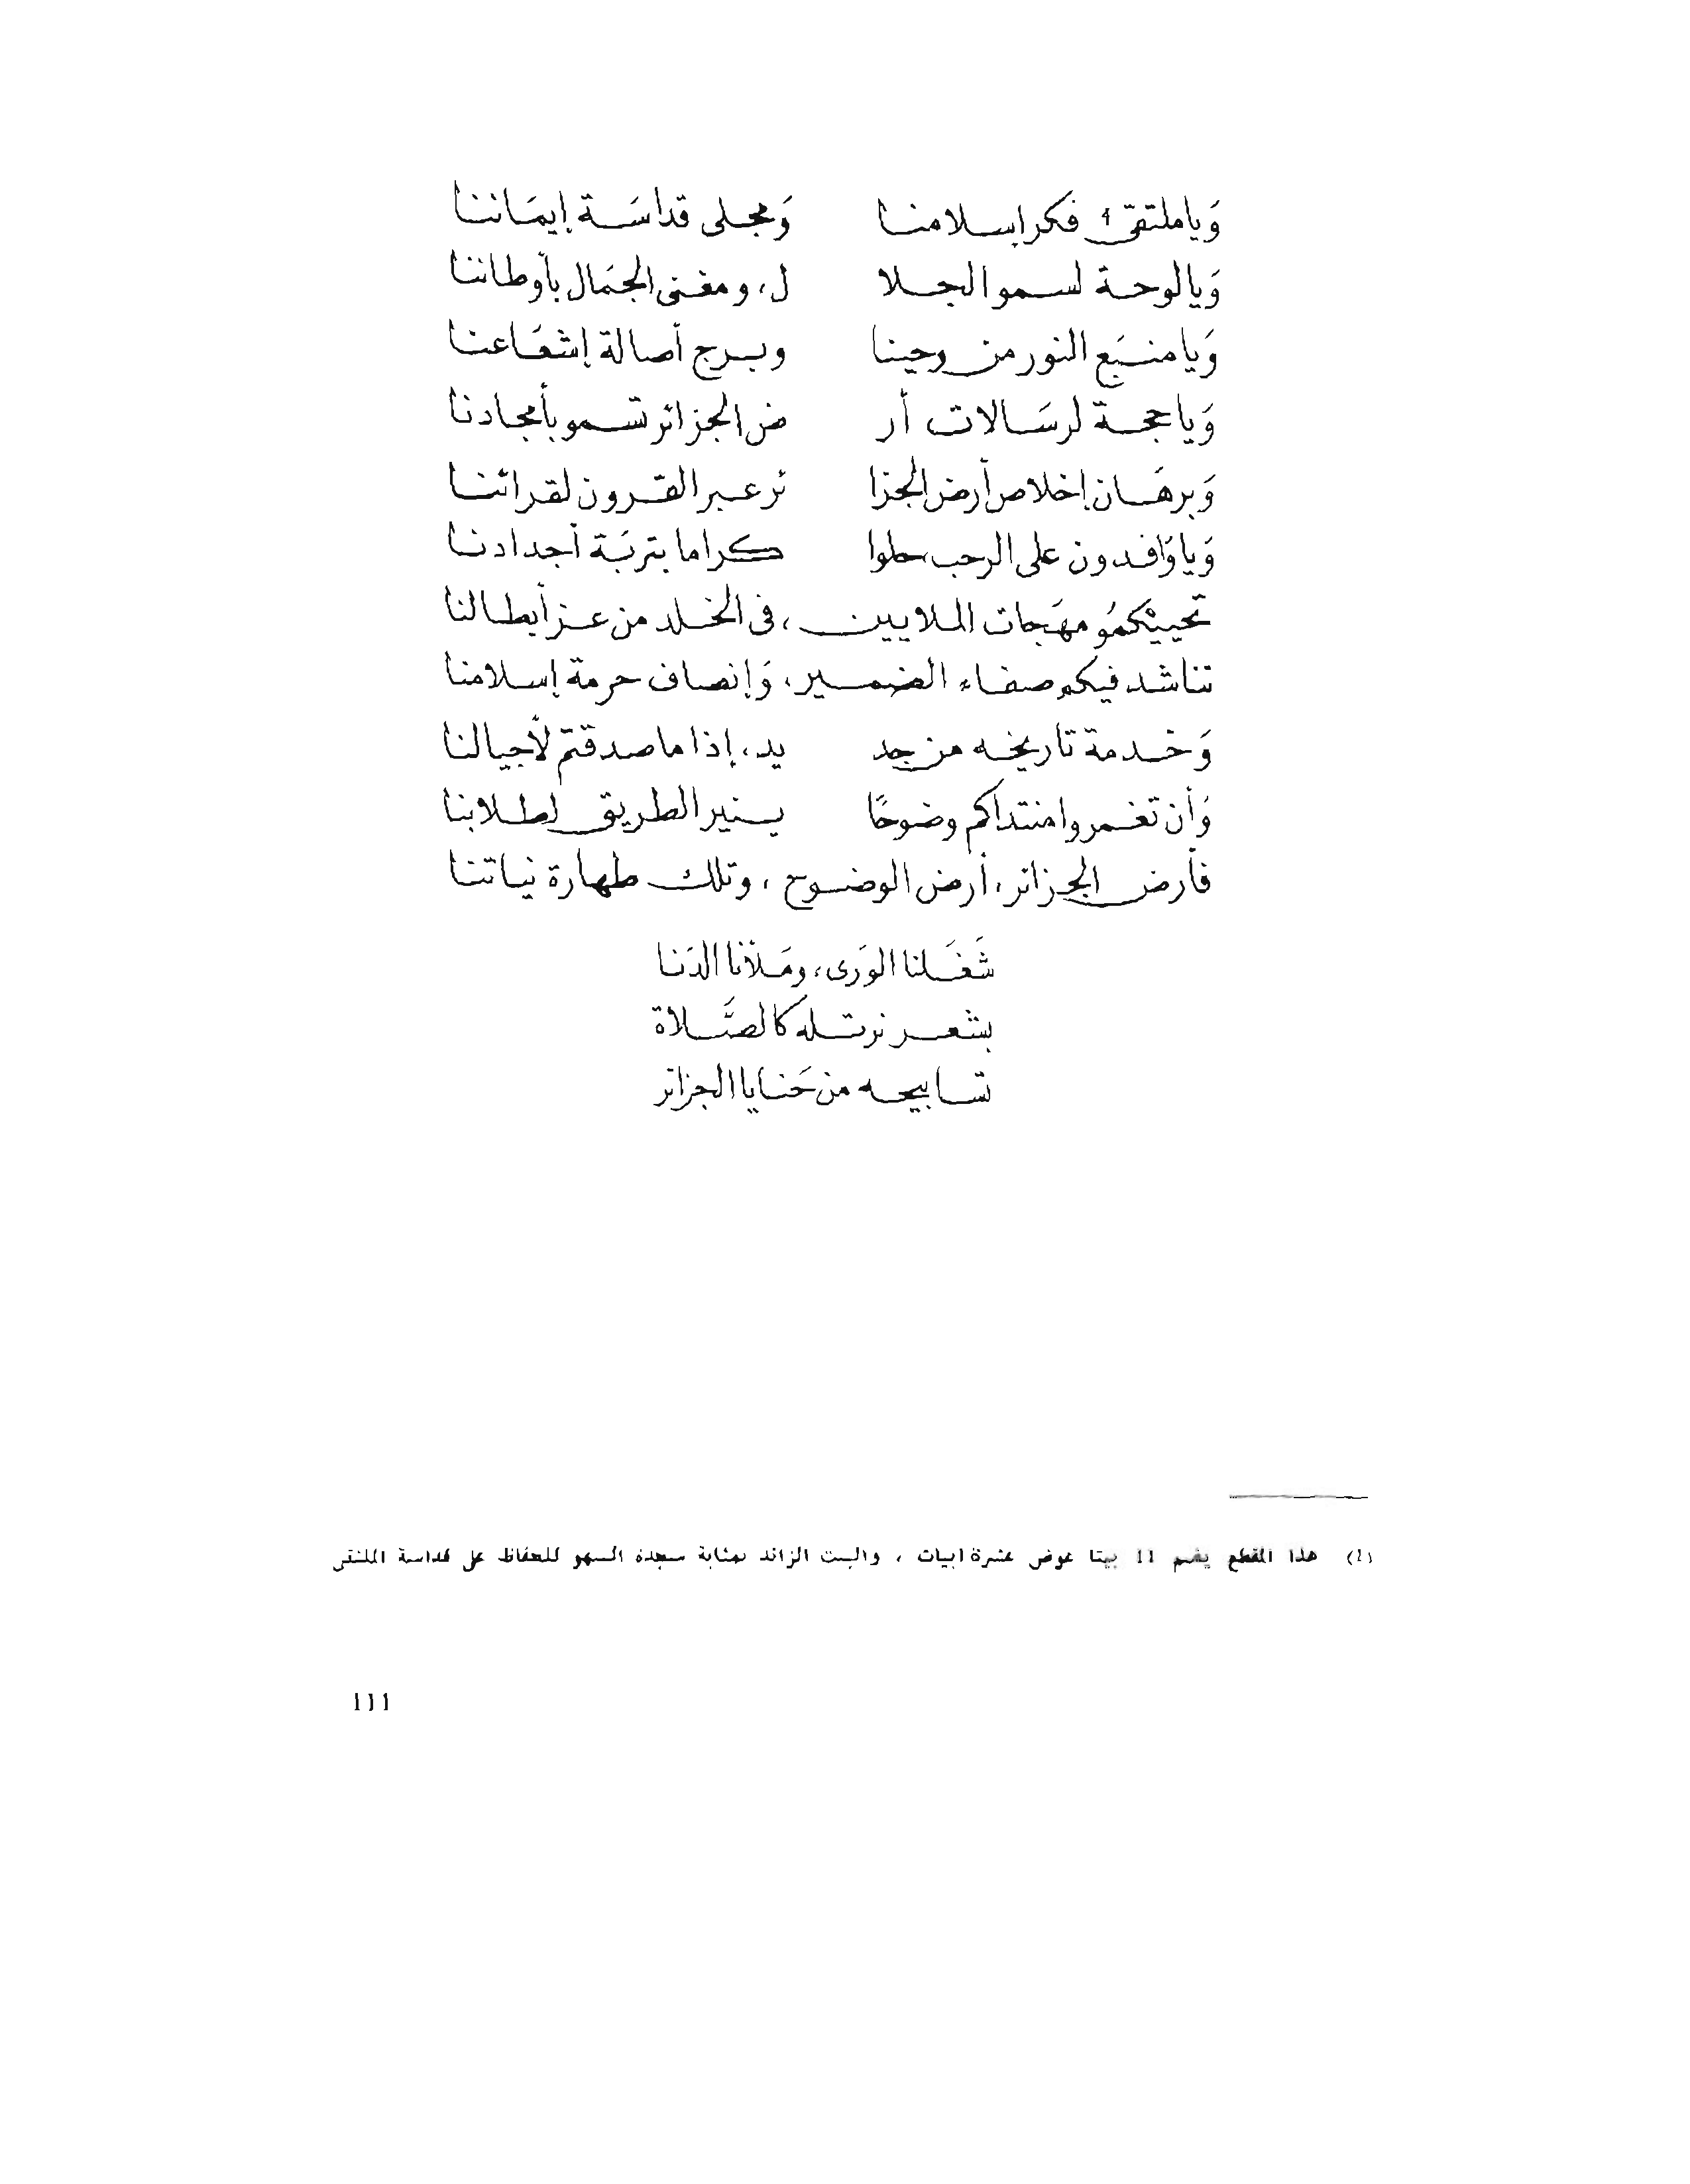 وَيا ملتقى 1 فكر إسلامنا وَمجلى قداسَة إيمَاننا
وَيا لوحة لسمو الجلا ل، ومغنى الجمَال بأوطاننا
وَيا منبَع النور من وحينا وبرج أصالة إشعَاعنا
وَيا حجة لرسَالات أر ض الجزائر تسمو بأمجادنا
وَبرهَان إخلاص أرض الجزا ئر عبر القرون لقرائنا
وَيا وَافدون على الرحب حلوا كراما بتربَة أجدادنا
تحييْكمُو مهَجات الملايين، في الخلد من عز أبطالنا
تناشد فيكم صفاء الضمير، وَإنصاف حرمة إسلامنا
وَخدمة تاريخه من جد يد، إذا ما صدقتمْ لأجيالنا
وَأن تغمروا منتداكم وضوحًا ينير الطريق لطلابنا
فأرض الجزائر، أرض الوضوح، وتلك طهارة نياتنا
شَغَلنا الوَرى، ومَلأنا الدَنا
بشعر نرتله كالصَّلاة
تسابيحه من حَنايا الجزائر
(1) هذا المقطع يضم 11 بيتا عوض عشرة ابيات ، والبيت الزائد بمثابة سجدة السهو للحفاظ على قداسة الملتقى
111